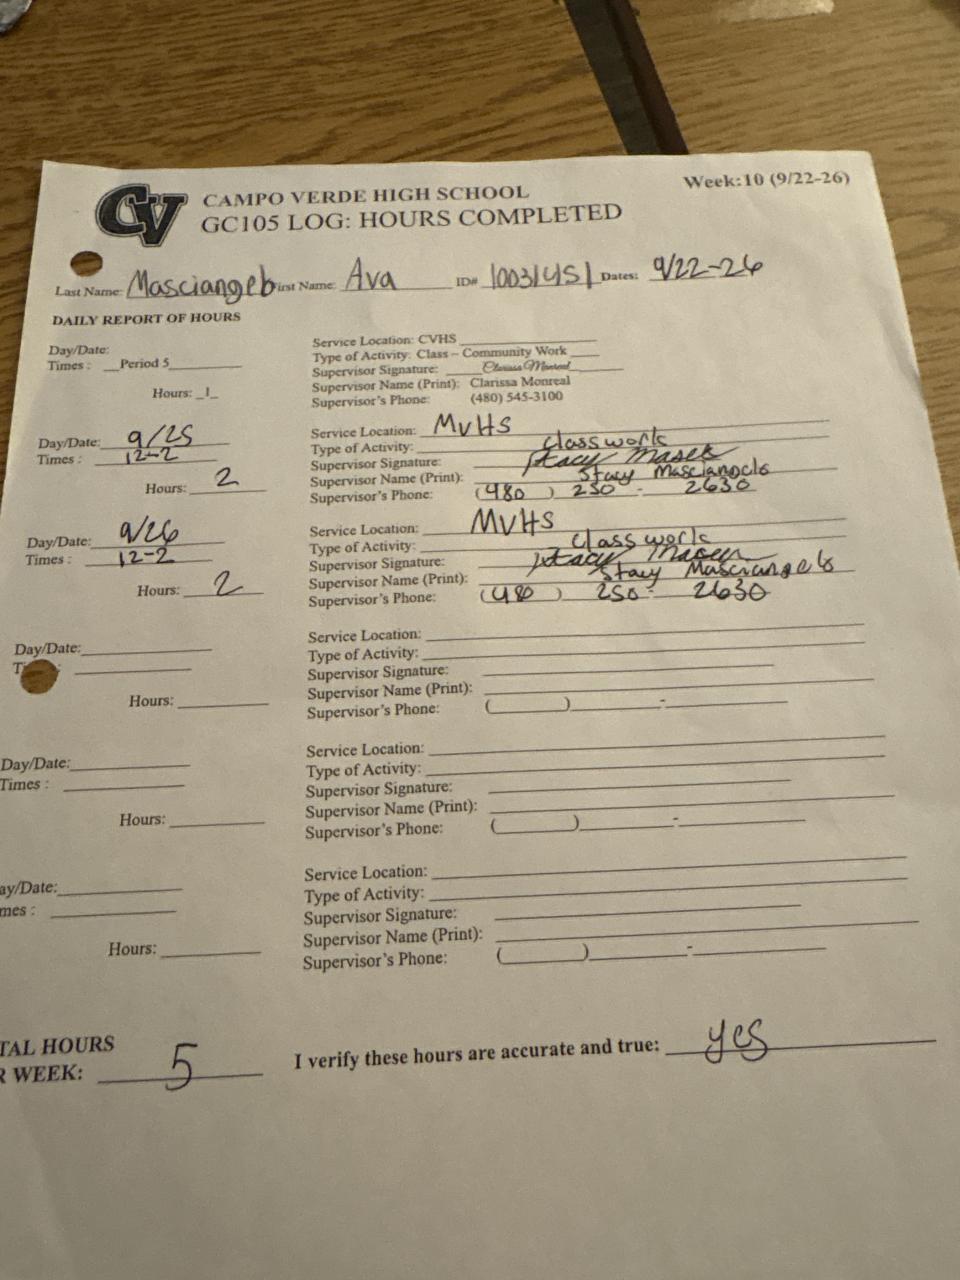 Week:10 (9/22-26)
CV
CAMPO VERDE HIGH SCHOOL
GC105 LOG: HOURS COMPLETED
Last Name: Masciangelo irst Name: Ava ID# 10031451 Dates: 9/22-26
DAILY REPORT OF HOURS
Day/Date:
Times : __Period 5
Hours: _1_
Service Location: CVHS
Type of Activity: Class – Community Work
Supervisor Signature: Clarissa Monreal
Supervisor Name (Print): Clarissa Monreal
Supervisor's Phone: (480) 545-3100
Day/Date: 9/25
Times : 12-2
Hours: 2
Service Location: MVHS
Type of Activity: Classwork
Supervisor Signature: Stacy
Supervisor Name (Print): Stacy Masciangelo
Supervisor's Phone: (480) 250 - 2630
Day/Date: 9/26
Times : 12-2
Hours: 2
Service Location: MVHS
Type of Activity: Classwork
Supervisor Signature: Stacy
Supervisor Name (Print): Stacy Masciangelo
Supervisor's Phone: (480) 250 - 2630
Day/Date:
Hours:
Service Location:
Type of Activity:
Supervisor Signature:
Supervisor Name (Print):
Supervisor's Phone: ( ) -
Day/Date:
Times :
Hours:
Service Location:
Type of Activity:
Supervisor Signature:
Supervisor Name (Print):
Supervisor's Phone: ( ) -
ay/Date:
mes :
Hours:
Service Location:
Type of Activity:
Supervisor Signature:
Supervisor Name (Print):
Supervisor's Phone: ( ) -
TAL HOURS
R WEEK: 5
I verify these hours are accurate and true: yes